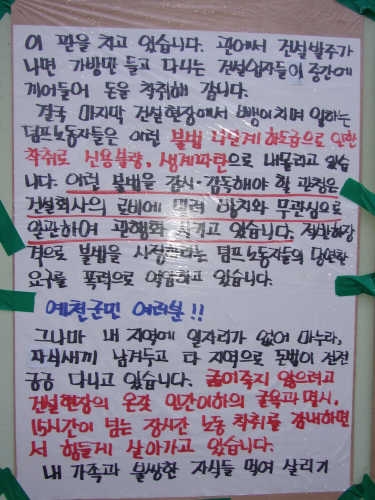 이 판을 치고 있습니다. 관에서 건설발주가
나면 가방만 들고 다니는 건설업자들이 중간에
끼어들어 돈을 착취해 갑니다.
결국 마지막 건설현장에서 뺑이치며 일하는
덤프노동자들은 이런 불법 다단계 하도급으로 인한
착취로 신용불량, 생계파탄으로 내몰리고 있습
니다. 이런 불법을 감시·감독해야 할 관청은
건설회사의 로비에 밀려 방치와 무관심으로
일관하여 관행화 시키고 있습니다.
으로 불법을 시정하라는 덤프노동자들의 당연한
요구를 폭력으로 억압하고 있습니다.
예천군민 여러분!!
그나마 내 지역에 일자리가 없어 마누라,
자식새끼 남겨두고 타 지역으로 돈벌이 전전
긍긍 다니고 있습니다. 굶어죽지 않으려고
건설현장의 온갖 인간이하의 굴욕과 멸시,
15시간이 넘는 장시간 노동 착취를 감내하면
서 힘들게 살아가고 있습니다.
내 가족과 불쌍한 자식들 먹여 살리기